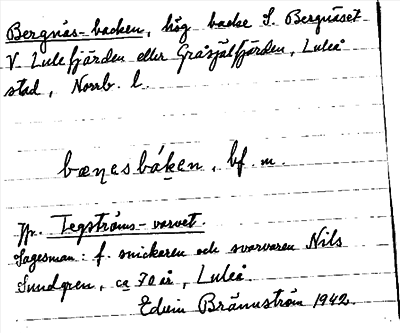 Bergnäs-backen, hög backe S. Bergnäset
V. Lulefjärden eller Gråsjälfjärden, Luleå
stad, Norrb. l.
bæṇesbáḵen, bf. m.
Jfr. Tegströms-varvet.
Sagesman: f. snickaren och svarvaren Nils
Sundgren, ca 70 år, Luleå.
Edvin Brännström 1942.